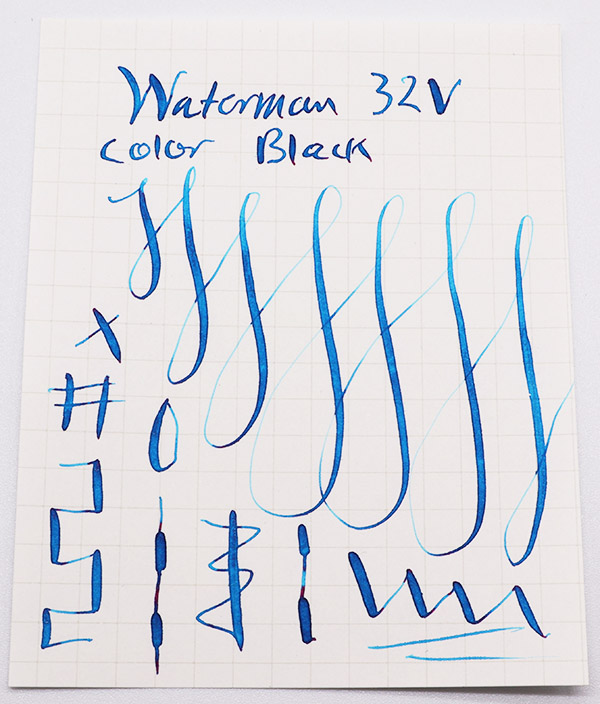 Waterman 32V
Color Black